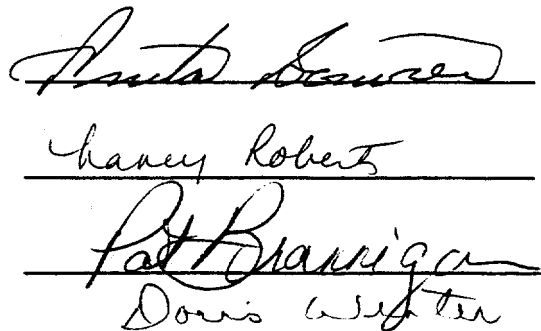 Anita
Nancy Roberts
Pat Brannigan
Doris Winter